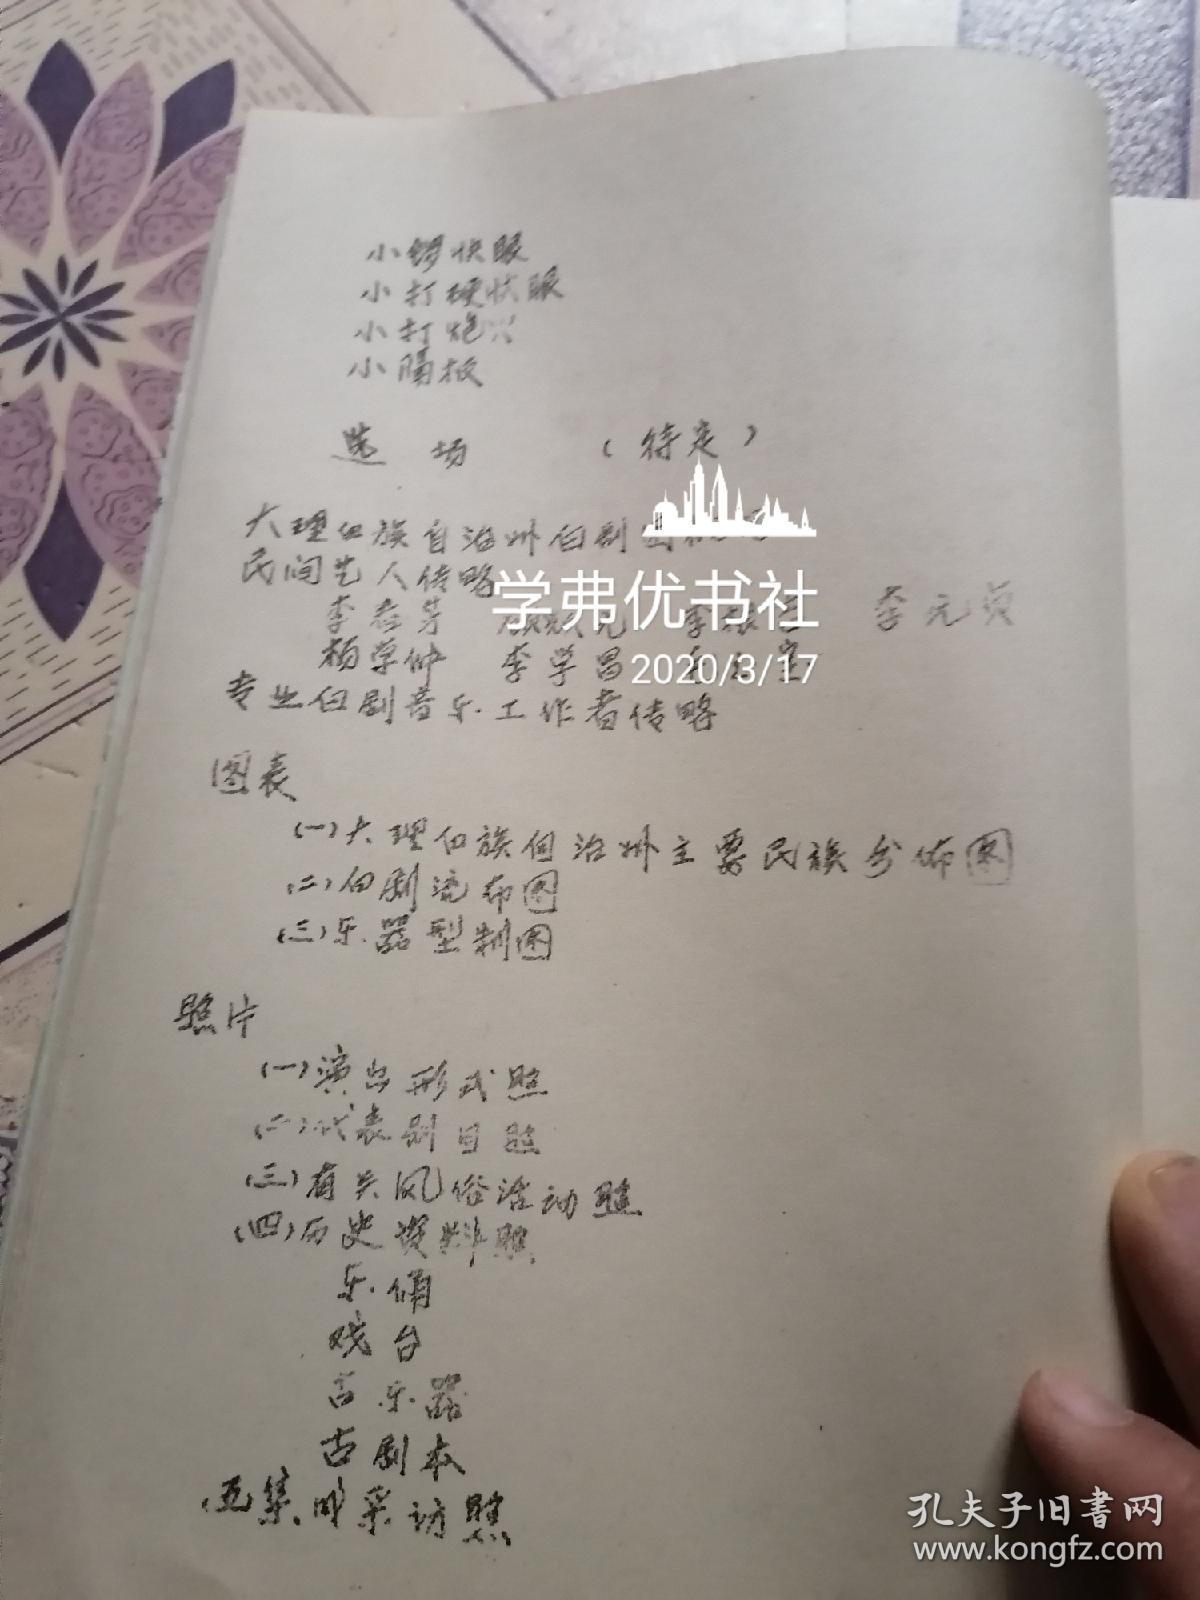 小锣快眼
小打硬快眼
小打炮
小隔板
选场 （待定）
大理白族自治州白剧团
民间艺人传略
李春芳 李元贞
杨学仲 李学昌
专业白剧音乐工作者传略
图表
(一)大理白族自治州主要民族分佈图
(二)白剧流布图
(三)乐器型制图
照片
(一)演出形式照
(二)代表剧目照
(三)有关风俗活动照
(四)历史资料照
乐俑
戏台
古乐器
古剧本
(五)集成采访照
学弗优书社
2020/3/17
孔夫子旧书网
www.kongfz.com